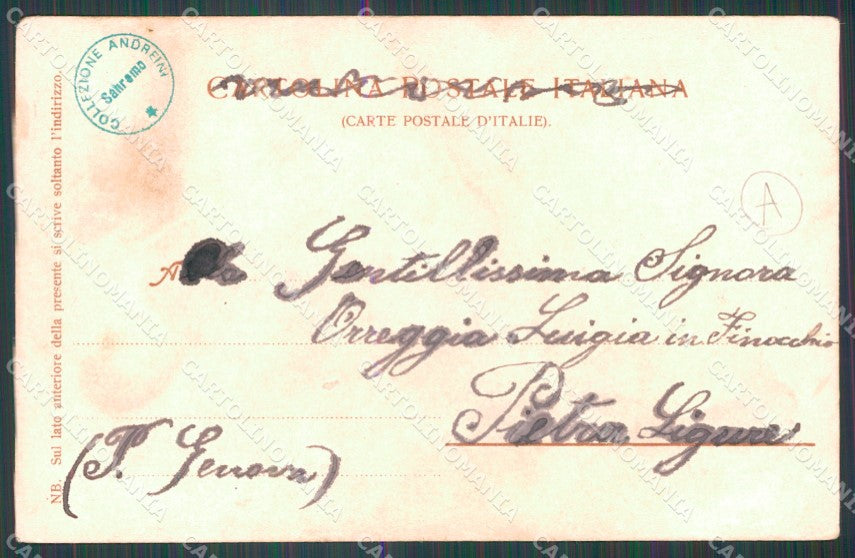 COLLEZIONE ANDREINI
Sanremo
CARTOLINA POSTALE ITALIANA
(CARTE POSTALE D'ITALIE).
A
Alla Gentillissima Signora
Orreggia Luigia in Finocchio
Pietra Ligure
(P. Genova)
NB. Sul lato anteriore della presente si scrive soltanto l'indirizzo.
CARTOLINOMANIA